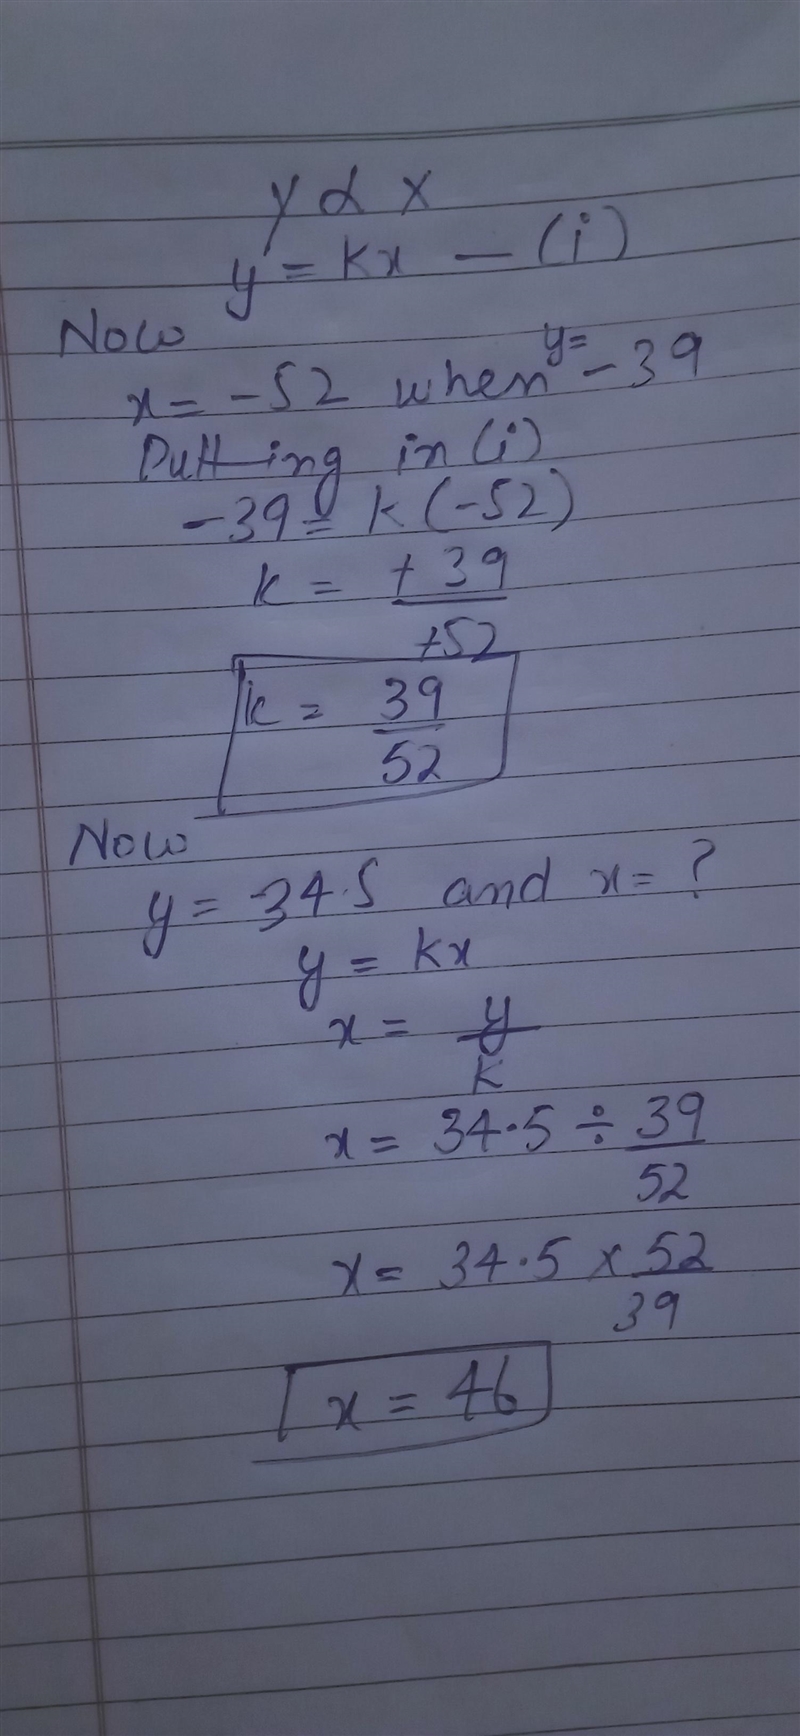 y α x
y = kx — (i)
Now
x = -52 when y= -39
Putting in (i)
-39 = k (-52)
k = +39
+52
k = 39
52
Now
y = 34.5 and x = ?
y = kx
x = y
k
x = 34.5 ÷ 39
52
x = 34.5 × 52
39
x = 46